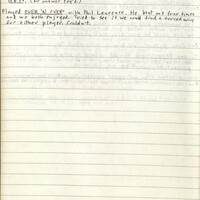 Played OVER 'N OVER with Phil Laurence. He beat me four times
and we both enjoyed. Tried to see if we could find a forced win
for either player. Couldn't.